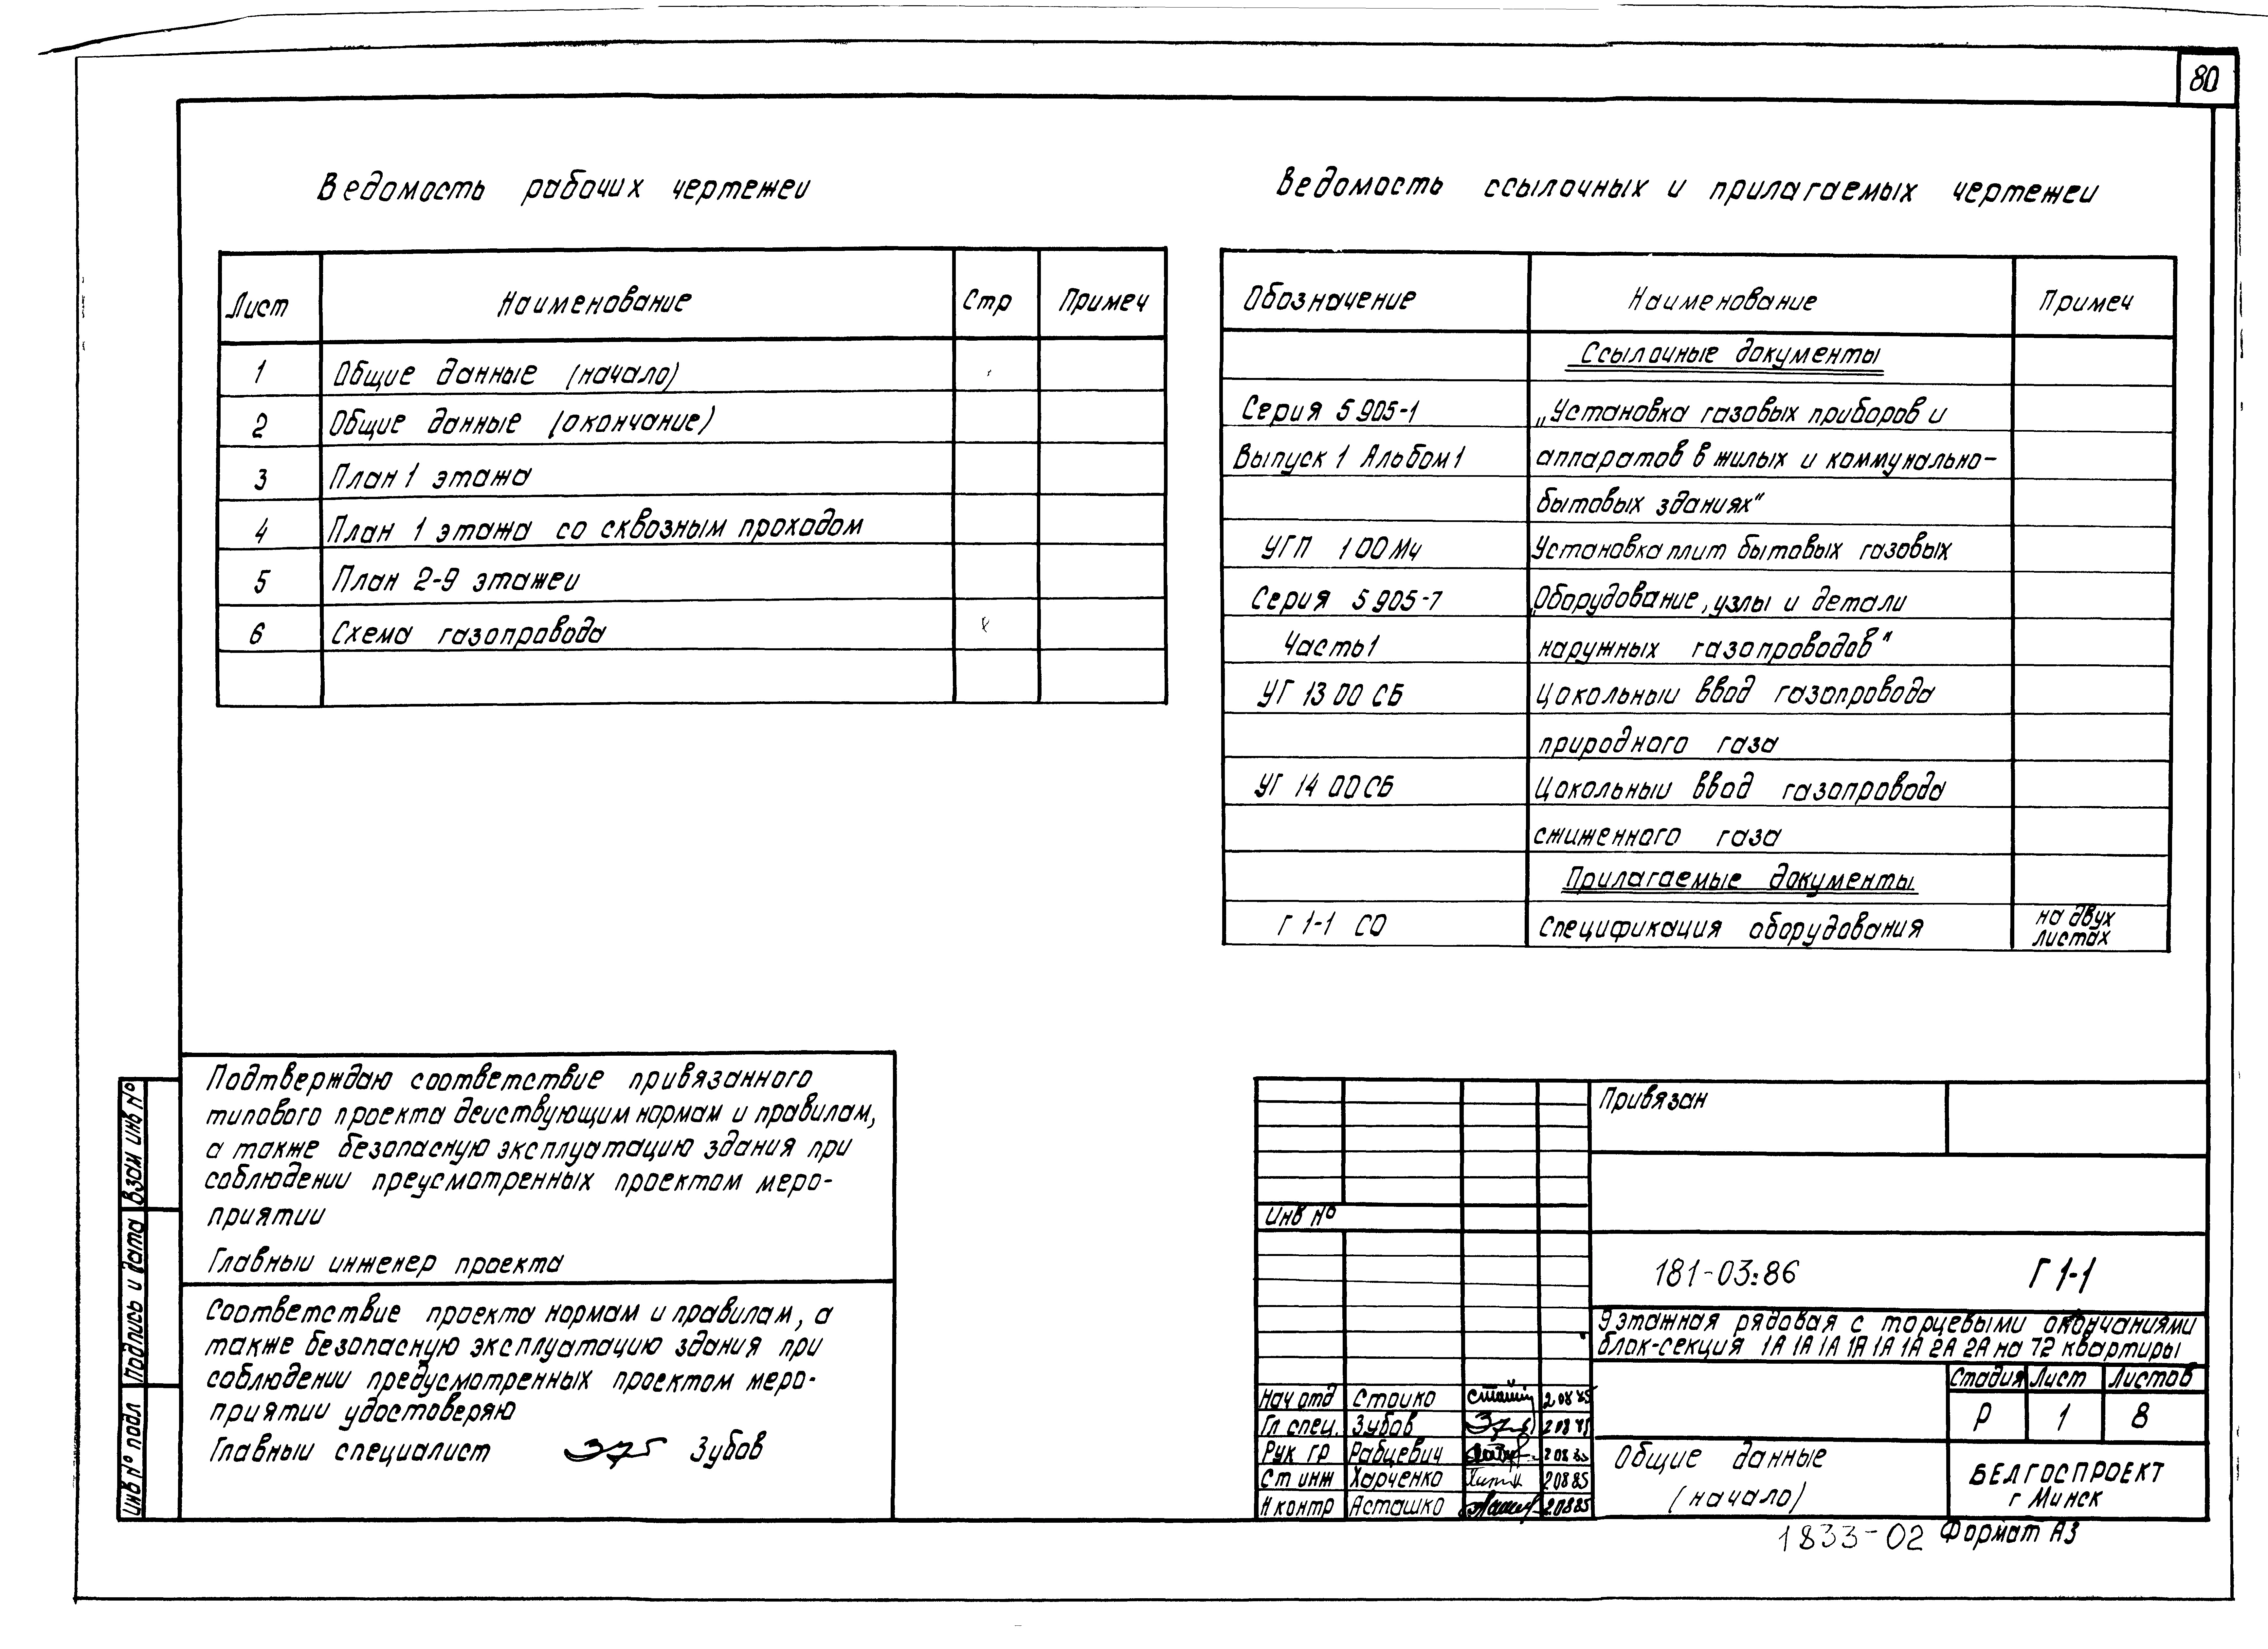 80
Ведомость рабочих чертежеи
Лист Наименование Стр Примеч
1 Общие данные (начало)
2 Общие данные (окончание)
3 План 1 этажа
4 План 1 этажа со сквозным проходом
5 План 2-9 этажеи
6 Схема газопровода
Ведомость ссылочных и прилагаемых чертежеи
Обозначение Наименование Примеч
Ссылочные документы
Серия 5 905-1 „Установка газовых приборов и
Выпуск 1 Альбом 1 аппаратов в жилых и коммунально-
бытовых зданиях"
УГП 1 00 МЧ Установка плит бытовых газовых
Серия 5 905-7 „Оборудование, узлы и детали
Часть 1 наружных газопроводов"
УГ 13 00 СБ Цокольныи ввод газопровода
природного газа
УГ 14 00 СБ Цокольныи ввод газопровода
сжиженного газа
Прилагаемые документы
Г 1-1 СО Спецификация оборудования на двух
листах
Подтверждаю соответствие привязанного
типового проекта деиствующим нормам и правилам,
а также безопасную эксплуатацию здания при
соблюдении преусмотренных проектом меро-
приятии
Главныи инженер проекта
Соответствие проекта нормам и правилам, а
также безопасную эксплуатацию здания при
соблюдении предусмотренных проектом меро-
приятии удостоверяю
Главныи специалист Зубов
Взам инв №
Подпись и дата
Инв № подл
Привязан
Инв №
181-03.86 Г 1-1
9этажная рядовая с торцевыми окончаниями
блок-секция 1А 1А 1А 1А 1А 1А 2А 2А на 72 квартиры
Стадия Лист Листов
Р 1 8
Нач отд Стоико 2 08 85
Гл спец. Зубов 2 08 85
Рук гр Рабцевич 2 08 85
Ст инж Харченко 2 08 85
Н контр Асташко 2 08 85
Общие данные
(начало)
БЕЛГОСПРОЕКТ
г Минск
1833-02 Формат А3